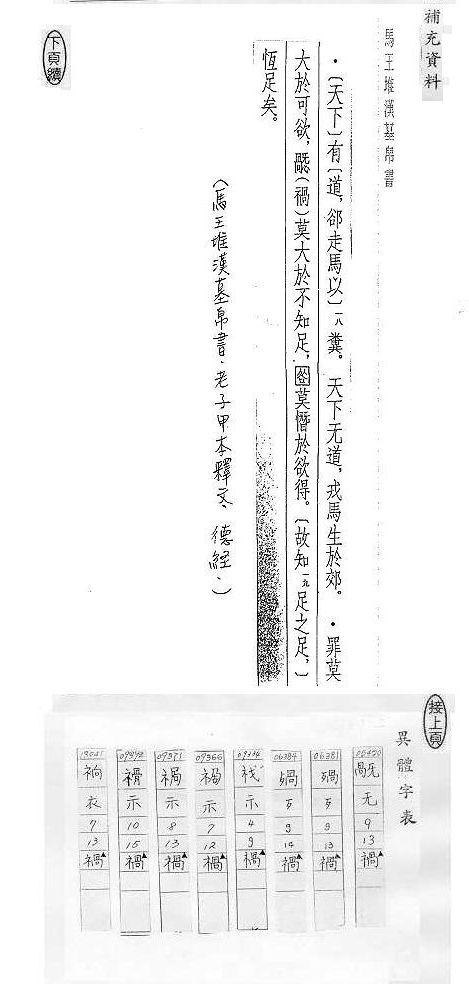 補充資料
馬王堆漢墓帛書
•〔天下〕有〔道,卻走馬以〕一八糞。天下无道,戎馬生於郊。•罪莫
大於可欲,(禍)莫大於不知足,咎莫憯於欲得。〔故知一九足之足,〕
恆足矣。
(馬王堆漢墓帛書.老子甲本釋文、德經.)
下頁續
接上頁
異體字表
06420
无
9
13
禍
06381
歹
9
13
禍
06384
歹
9
14
禍
示
4
9
禍
07366
示
7
12
禍
07371
示
8
13
禍
示
10
15
禍
衣
7
13
禍